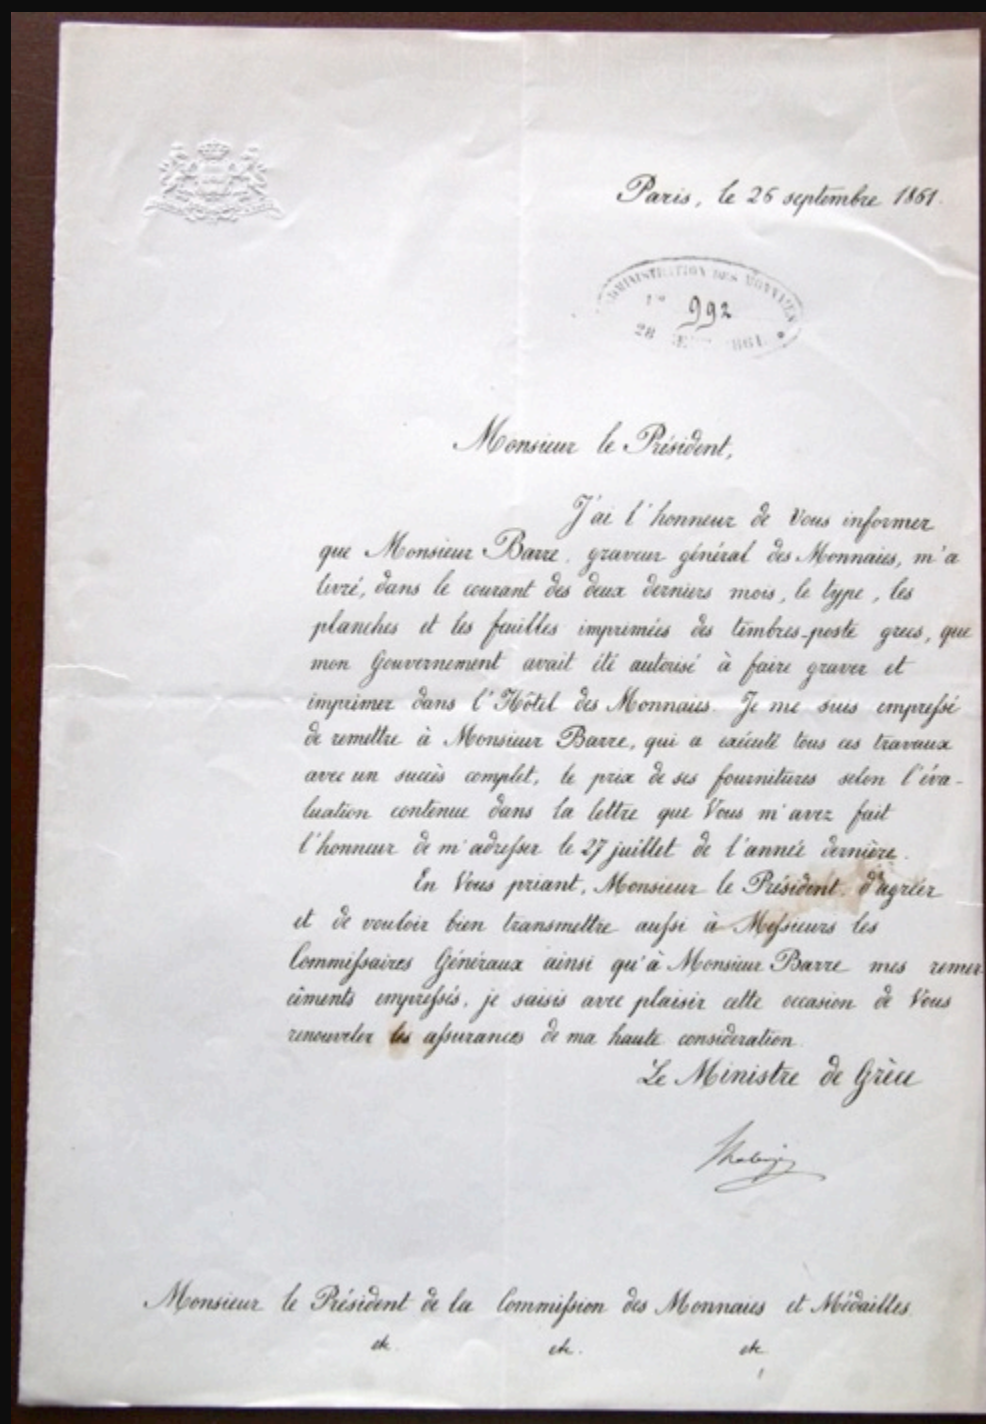 Paris, le 26 septembre 1861.
ADMINISTRATION DES MONNAIES
992
28 1861
Monsieur le Président,
J'ai l'honneur de Vous informer
que Monsieur Barre, graveur général des Monnaies, m'a
livré, dans le courant des deux derniers mois, le type, les
planches et les feuilles imprimées des timbres-poste grecs, que
mon Gouvernement avait été autorisé à faire graver et
imprimer dans l'Hôtel des Monnaies. Je me suis empressé
de remettre à Monsieur Barre, qui a exécuté tous ces travaux
avec un succès complet, le prix de ses fournitures selon l'éva-
luation contenue dans la lettre que Vous m'avez fait
l'honneur de m'adresser le 27 juillet de l'année dernière.
En Vous priant, Monsieur le Président, d'agréer
et de vouloir bien transmettre aussi à Messieurs les
Commissaires Généraux ainsi qu'à Monsieur Barre mes remer
cîments empressés, je saisis avec plaisir cette occasion de Vous
renouveler les assurances de ma haute considération.
Le Ministre de Grèce
Monsieur le Président de la Commission des Monnaies et Médailles.
etc. etc. etc.